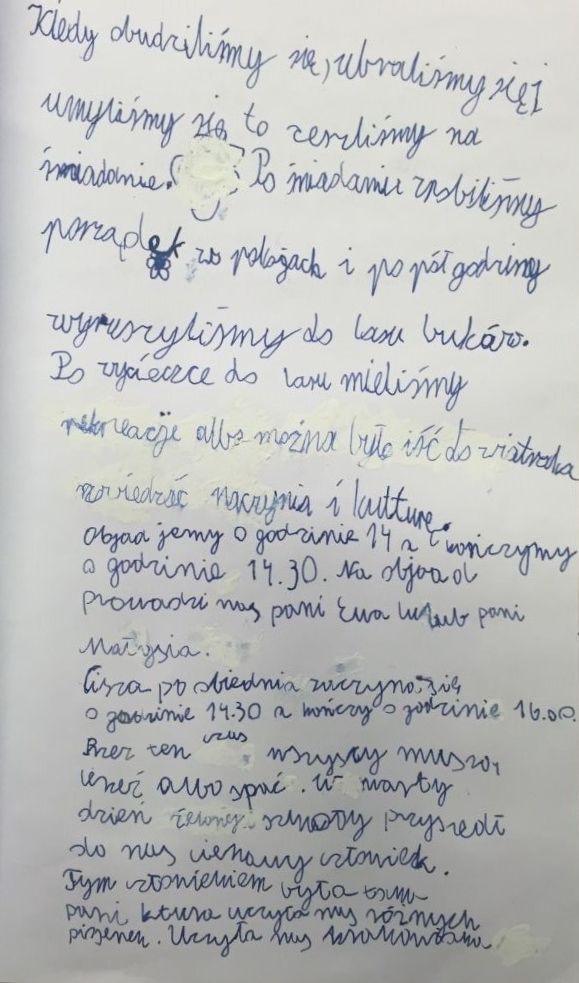 Kiedy obudziliśmy się, ubraliśmy się i
umyliśmy się to zeszliśmy na
śniadanie. Po śniadaniu zrobiliśmy
porządek w pokojach i po pół godziny
wyruszyliśmy do lasu buków.
Po wycieczce do lasu mieliśmy
rekreacje albo można było iść do wiatraka
zwiedzać naczynia i kulturę.
Objad jemy o godzinie 14 a kończymy
o godzinie 14.30. Na objad
prowadzi nas pani Ewa lub pani
Małgosia.
Cisza po obiednia zaczyna się
o godzinie 14.30 a kończy o godzinie 16.00.
Przez ten czas wszyscy muszą
leżeć albo spać. W
dzień zielonej szkoły przyszedł
do nas ciekawy człowiek.
Tym człowiekiem była
pani ktura uczyła nas różnych
piosenek. Uczyła nas krakowiaka